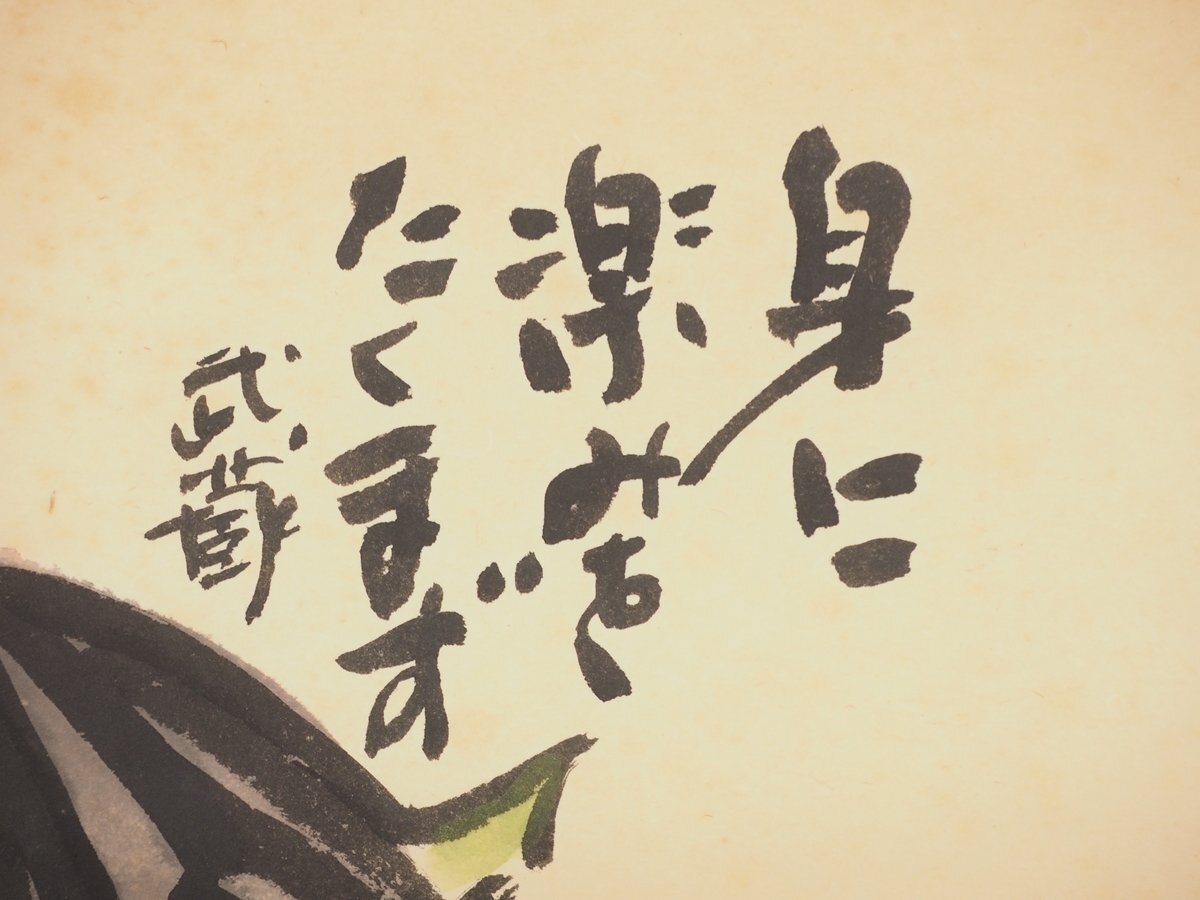 身に
楽みを
たくまず
武蔵